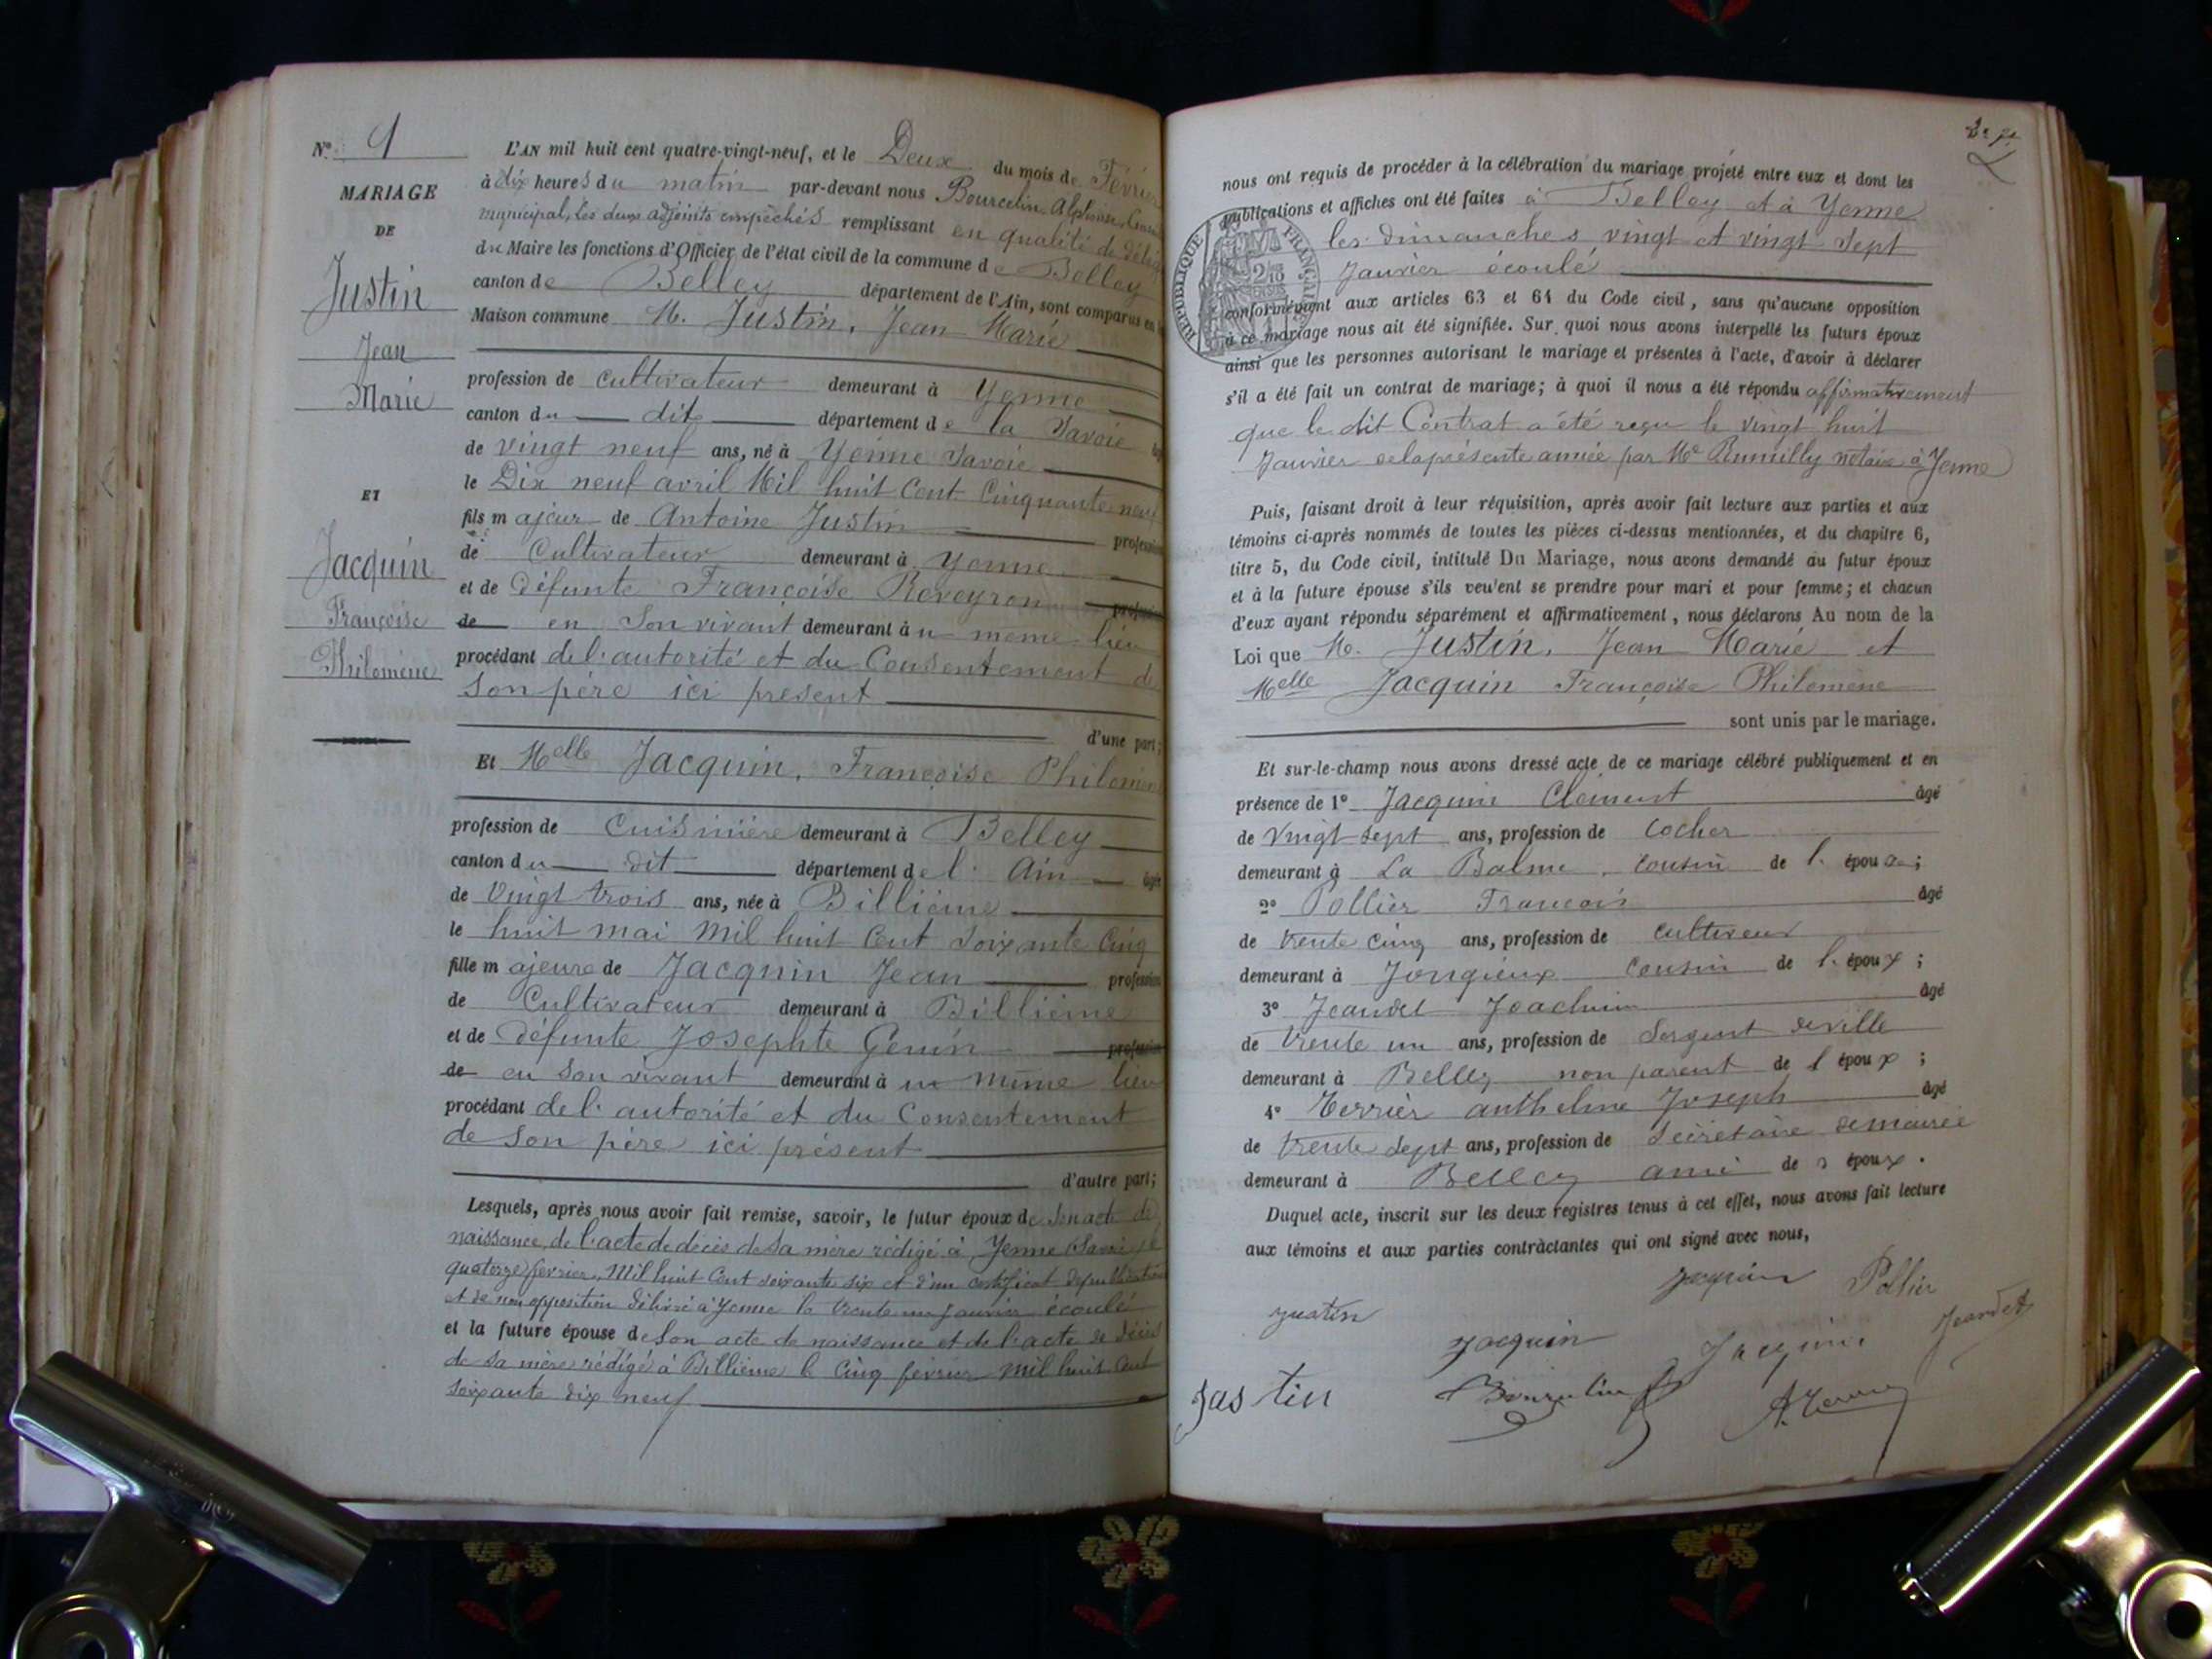 N° 9
MARIAGE
DE
Justin
Jean
Marie
ET
Jacquin
Françoise
Philomène
L'AN mil huit cent quatre-vingt-neuf, et le Deux du mois de Février
à dix heures du matin par-devant nous Bourcelin Alphonse,
municipal, les deux adjoints empêchés remplissant en qualité de
du Maire les fonctions d'Officier de l'état civil de la commune de Belley
canton de Belley département de l'Ain, sont comparus en
Maison commune M. Justin, Jean Marie
profession de cultivateur demeurant à Yenne
canton du dit département de la Savoie
de vingt neuf ans, né à Yenne Savoie
le Dix neuf avril Mil huit Cent Cinquante neuf
fils majeur de Antoine Justin profession
de Cultivateur demeurant à Yenne
et de Défunte Françoise Reveyron profession
de en Son vivant demeurant à u même lieu
procédant de l'autorité et du Consentement de
son père ici présent
d'une part;
Et Melle Jacquin, Françoise Philomène
profession de Cuisinière demeurant à Belley
canton du dit département de l'Ain âgée
de Vingt trois ans, née à Billième
le huit mai Mil huit Cent Soixante Cinq
fille majeure de Jacquin Jean profession
de Cultivateur demeurant à Billième
et de Défunte Josephte Genin profession
de en son vivant demeurant à u même lieu
procédant de l'autorité et du Consentement
de Son père ici présent
d'autre part;
Lesquels, après nous avoir fait remise, savoir, le futur époux de Son acte de
naissance, de l'acte de décès de Sa mère rédigé à Yenne (Savoie) le
quatorze février, Mil huit Cent soixante six et d'un certificat de publication
et de non opposition délivré à Yenne le trente un Janvier écoulé
et la future épouse de Son acte de naissance et de l'acte de décès
de Sa mère rédigé à Billième le Cinq février Mil huit Cent
Soixante dix neuf
nous ont requis de procéder à la célébration du mariage projeté entre eux et dont les
publications et affiches ont été faites à Belley et à Yenne
les dimanches vingt et vingt Sept
Janvier écoulé
REPUBLIQUE FRANÇAISE
conformément aux articles 63 et 64 du Code civil, sans qu'aucune opposition
à ce mariage nous ait été signifiée. Sur quoi nous avons interpellé les futurs époux
ainsi que les personnes autorisant le mariage et présentes à l'acte, d'avoir à déclarer
s'il a été fait un contrat de mariage; à quoi il nous a été répondu affirmativement
que le dit Contrat a été reçu le vingt huit
Janvier de la présente année par Me Rumilly notaire à Yenne
Puis, faisant droit à leur réquisition, après avoir fait lecture aux parties et aux
témoins ci-après nommés de toutes les pièces ci-dessus mentionnées, et du chapitre 6,
titre 5, du Code civil, intitulé Du Mariage, nous avons demandé au futur époux
et à la future épouse s'ils veulent se prendre pour mari et pour femme; et chacun
d'eux ayant répondu séparément et affirmativement, nous déclarons Au nom de la
Loi que M. Justin, Jean Marie et
Melle Jacquin Françoise Philomène
sont unis par le mariage.
Et sur-le-champ nous avons dressé acte de ce mariage célébré publiquement et en
présence de 1° Jacquin Clément âgé
de Vingt Sept ans, profession de Cocher
demeurant à La Balme, cousin de l'épouse;
2° Pollier François âgé
de trente cinq ans, profession de cultiveur
demeurant à Jongieux Cousin de l'époux;
3° Jeandet Joachim âgé
de trente un ans, profession de Sergent de ville
demeurant à Belley non parent de l'époux;
4° Terrier anthelme Joseph âgé
de trente Sept ans, profession de Secrétaire de mairie
demeurant à Belley ami de s époux.
Duquel acte, inscrit sur les deux registres tenus à cet effet, nous avons fait lecture
aux témoins et aux parties contractantes qui ont signé avec nous,
Jacquin Pollier
justin Jacquin Jacquin Jeandet
Jas tin Bourcelin